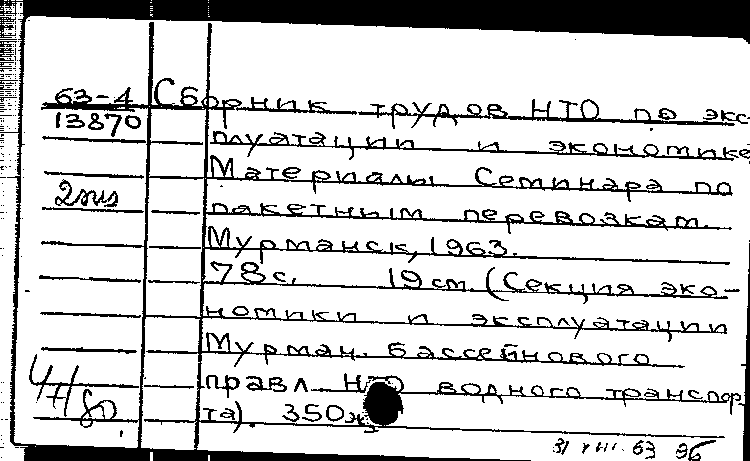 63-4 Сборник трудов НТО по экс-
13870 плуатации и экономике
Материалы Семинара по
2 пакетным перевозкам.
Мурманск, 1963.
78 с. 19 см. (Секция эко-
номики и эксплуатации
Мурман. бассейнового
правл. НТО водного транспор
та). 350 экз
31 VIII. 63